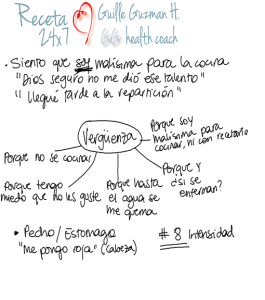 Receta
24x7
Guille Guzman H.
health coach
• Siento que soy malísima para la cocina
"Dios seguro no me dió ese talento"
"Llegué tarde a la repartición"
Vergüenza
Porque soy
malísima para
cocinar, ni con recetario
Porque no se cocinar
Porque tengo
miedo que no les guste
Porque hasta
el agua se
me quema
Porque y
¿si se
enferman?
• Pecho / Estomago
"Me pongo roja" (cabeza)
# 8 Intensidad